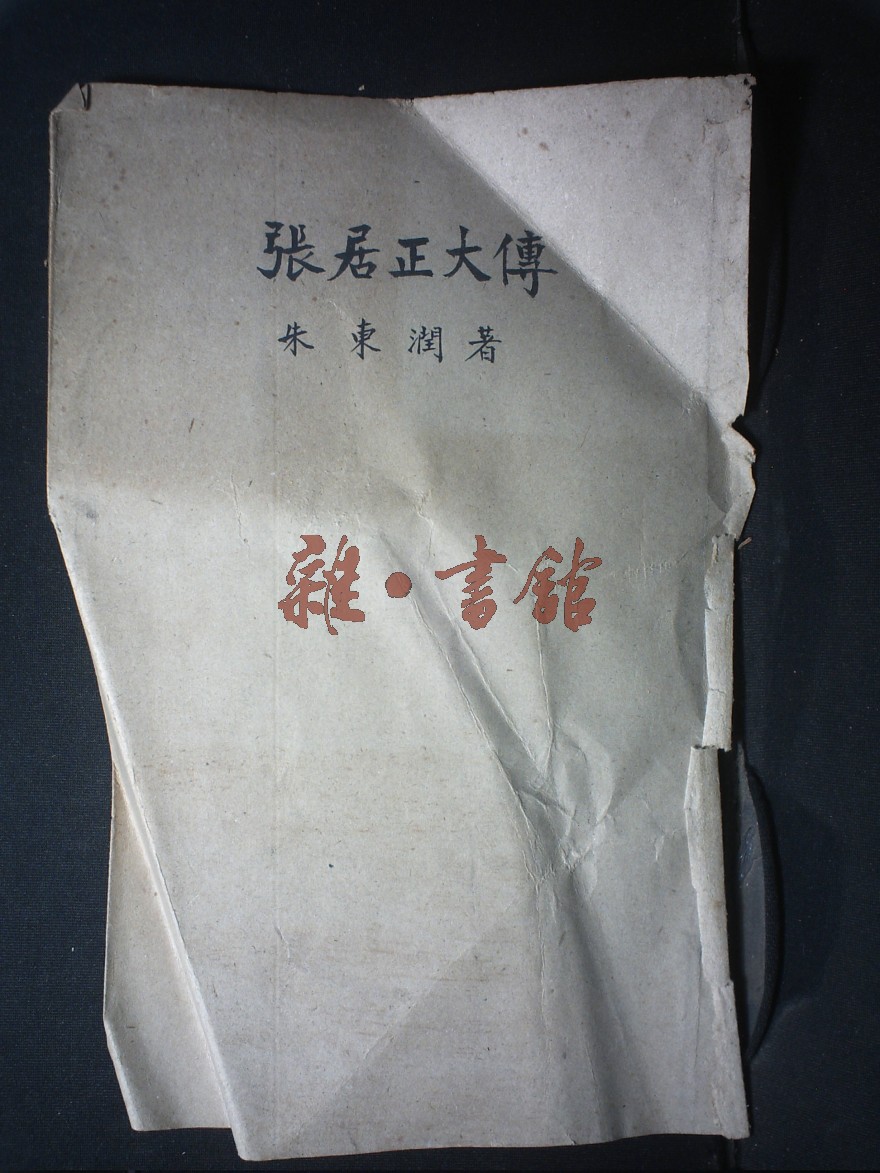 張居正大傳
朱東潤著
雜·書館